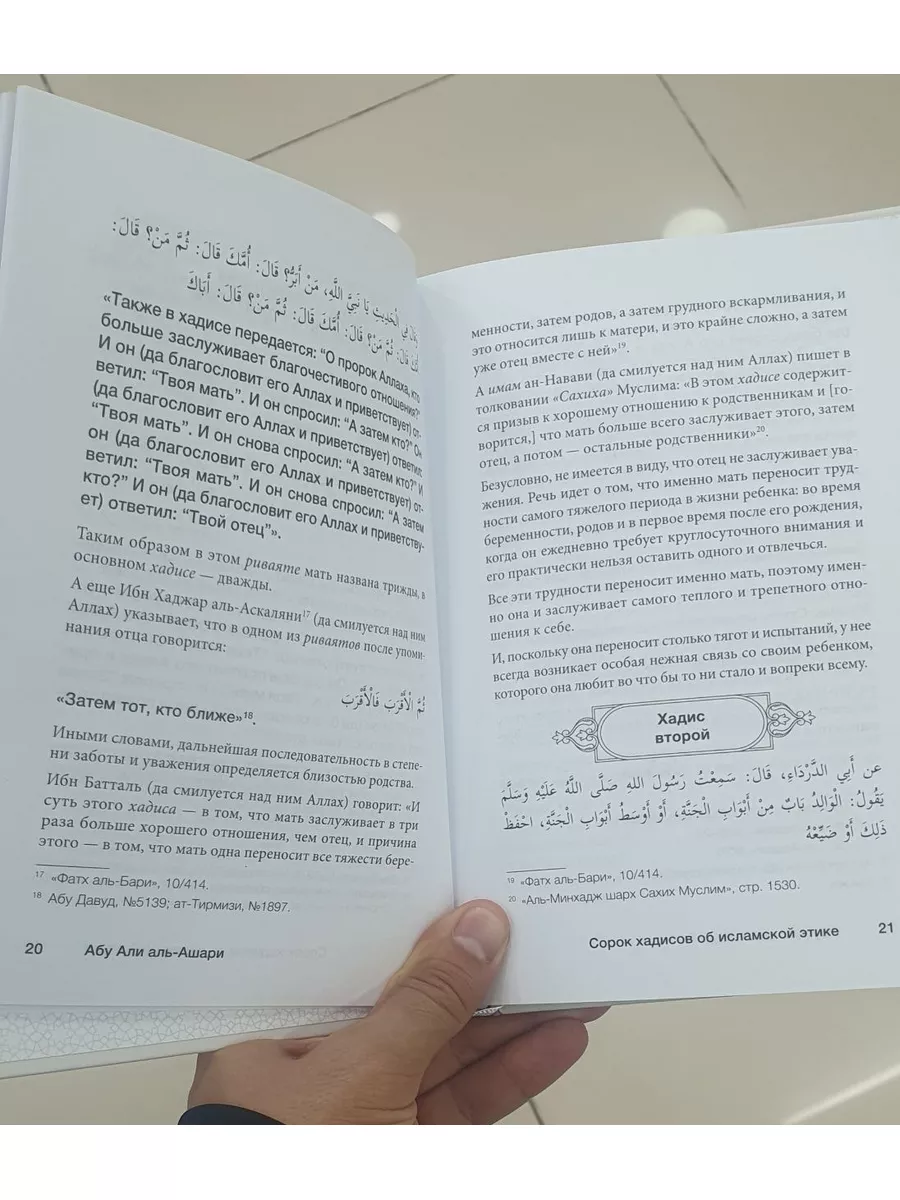 يُقَالُ فِي الْحَدِيثِ يَا نَبِيَّ اللَّهِ، مَنْ أَبَرُّ؟ قَالَ: أُمَّكَ قَالَ: ثُمَّ مَنْ؟ قَالَ:
أُمَّكَ قَالَ: ثُمَّ مَنْ؟ قَالَ: أُمَّكَ قَالَ: ثُمَّ مَنْ؟ قَالَ: أَبَاكَ
«Также в хадисе передается: “О пророк Аллаха, кто
больше заслуживает благочестивого отношения?”
И он (да благословит его Аллах и приветствует) от-
ветил: “Твоя мать”. И он спросил: “А затем кто?” Он
(да благословит его Аллах и приветствует) ответил:
“Твоя мать”. И он снова спросил: “А затем кто?” И
он (да благословит его Аллах и приветствует) от-
ветил: “Твоя мать”. И он снова спросил: “А затем
кто?” И он (да благословит его Аллах и приветству-
ет) ответил: “Твой отец”».
Таким образом в этом риваяте мать названа трижды, в
основном хадисе — дважды.
А еще Ибн Хаджар аль-Аскаляни17 (да смилуется над ним
Аллах) указывает, что в одном из риваятов после упоми-
нания отца говорится:
ثُمَّ الْأَقْرَبَ فَالْأَقْرَبَ
«Затем тот, кто ближе»18.
Иными словами, дальнейшая последовательность в степе-
ни заботы и уважения определяется близостью родства.
Ибн Батталь (да смилуется над ним Аллах) говорит: «И
суть этого хадиса — в том, что мать заслуживает в три
раза больше хорошего отношения, чем отец, и причина
этого — в том, что мать одна переносит все тяжести бере-
17 «Фатх аль-Бари», 10/414.
18 Абу Давуд, №5139; ат-Тирмизи, №1897.
20 Абу Али аль-Ашари
менности, затем родов, а затем грудного вскармливания, и
это относится лишь к матери, и это крайне сложно, а затем
уже отец вместе с ней»19.
А имам ан-Навави (да смилуется над ним Аллах) пишет в
толковании «Сахиха» Муслима: «В этом хадисе содержит-
ся призыв к хорошему отношению к родственникам и [го-
ворится,] что мать больше всего заслуживает этого, затем
отец, а потом — остальные родственники»20.
Безусловно, не имеется в виду, что отец не заслуживает ува-
жения. Речь идет о том, что именно мать переносит труд-
ности самого тяжелого периода в жизни ребенка: во время
беременности, родов и в первое время после его рождения,
когда он ежедневно требует круглосуточного внимания и
его практически нельзя оставить одного и отвлечься.
Все эти трудности переносит именно мать, поэтому имен-
но она и заслуживает самого теплого и трепетного отно-
шения к себе.
И, поскольку она переносит столько тягот и испытаний, у нее
всегда возникает особая нежная связь со своим ребенком,
которого она любит во что бы то ни стало и вопреки всему.
Хадис
второй
عن أَبِي الدَّرْدَاءِ، قَالَ: سَمِعْتُ رَسُولَ اللهِ صَلَّى اللَّهُ عَلَيْهِ وَسَلَّمَ
يَقُولُ: الْوَالِدُ بَابٌ مِنْ أَبْوَابِ الْجَنَّةِ، أَوْ أَوْسَطُ أَبْوَابِ الْجَنَّةِ، احْفَظْ
ذَلِكَ أَوْ ضَيِّعْهُ
19 «Фатх аль-Бари», 10/414.
20 «Аль-Минхадж шарх Сахих Муслим», стр. 1530.
Сорок хадисов об исламской этике 21